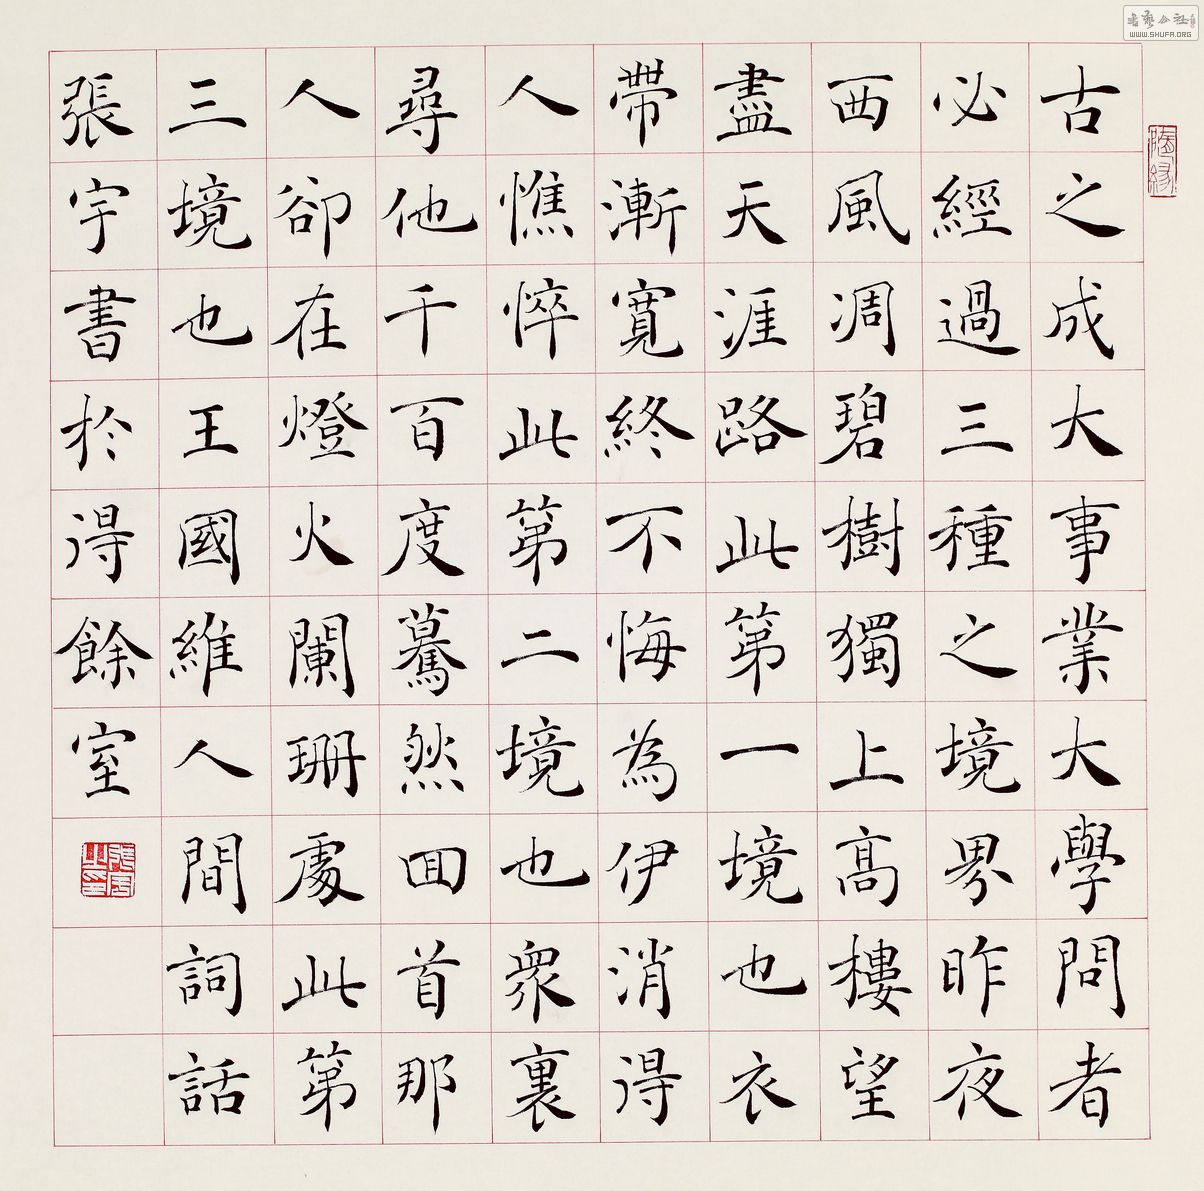 書藝公社
WWW.SHUFA.ORG
隨緣
古之成大事業大學問者
必經過三種之境界昨夜
西風凋碧樹獨上髙樓望
盡天涯路此第一境也衣
帶漸寬終不悔為伊消得
人憔悴此第二境也衆裏
尋他千百度驀然囬首那
人卻在燈火闌珊處此第
三境也王國維人間詞話
張宇書於得餘室
張宇之印